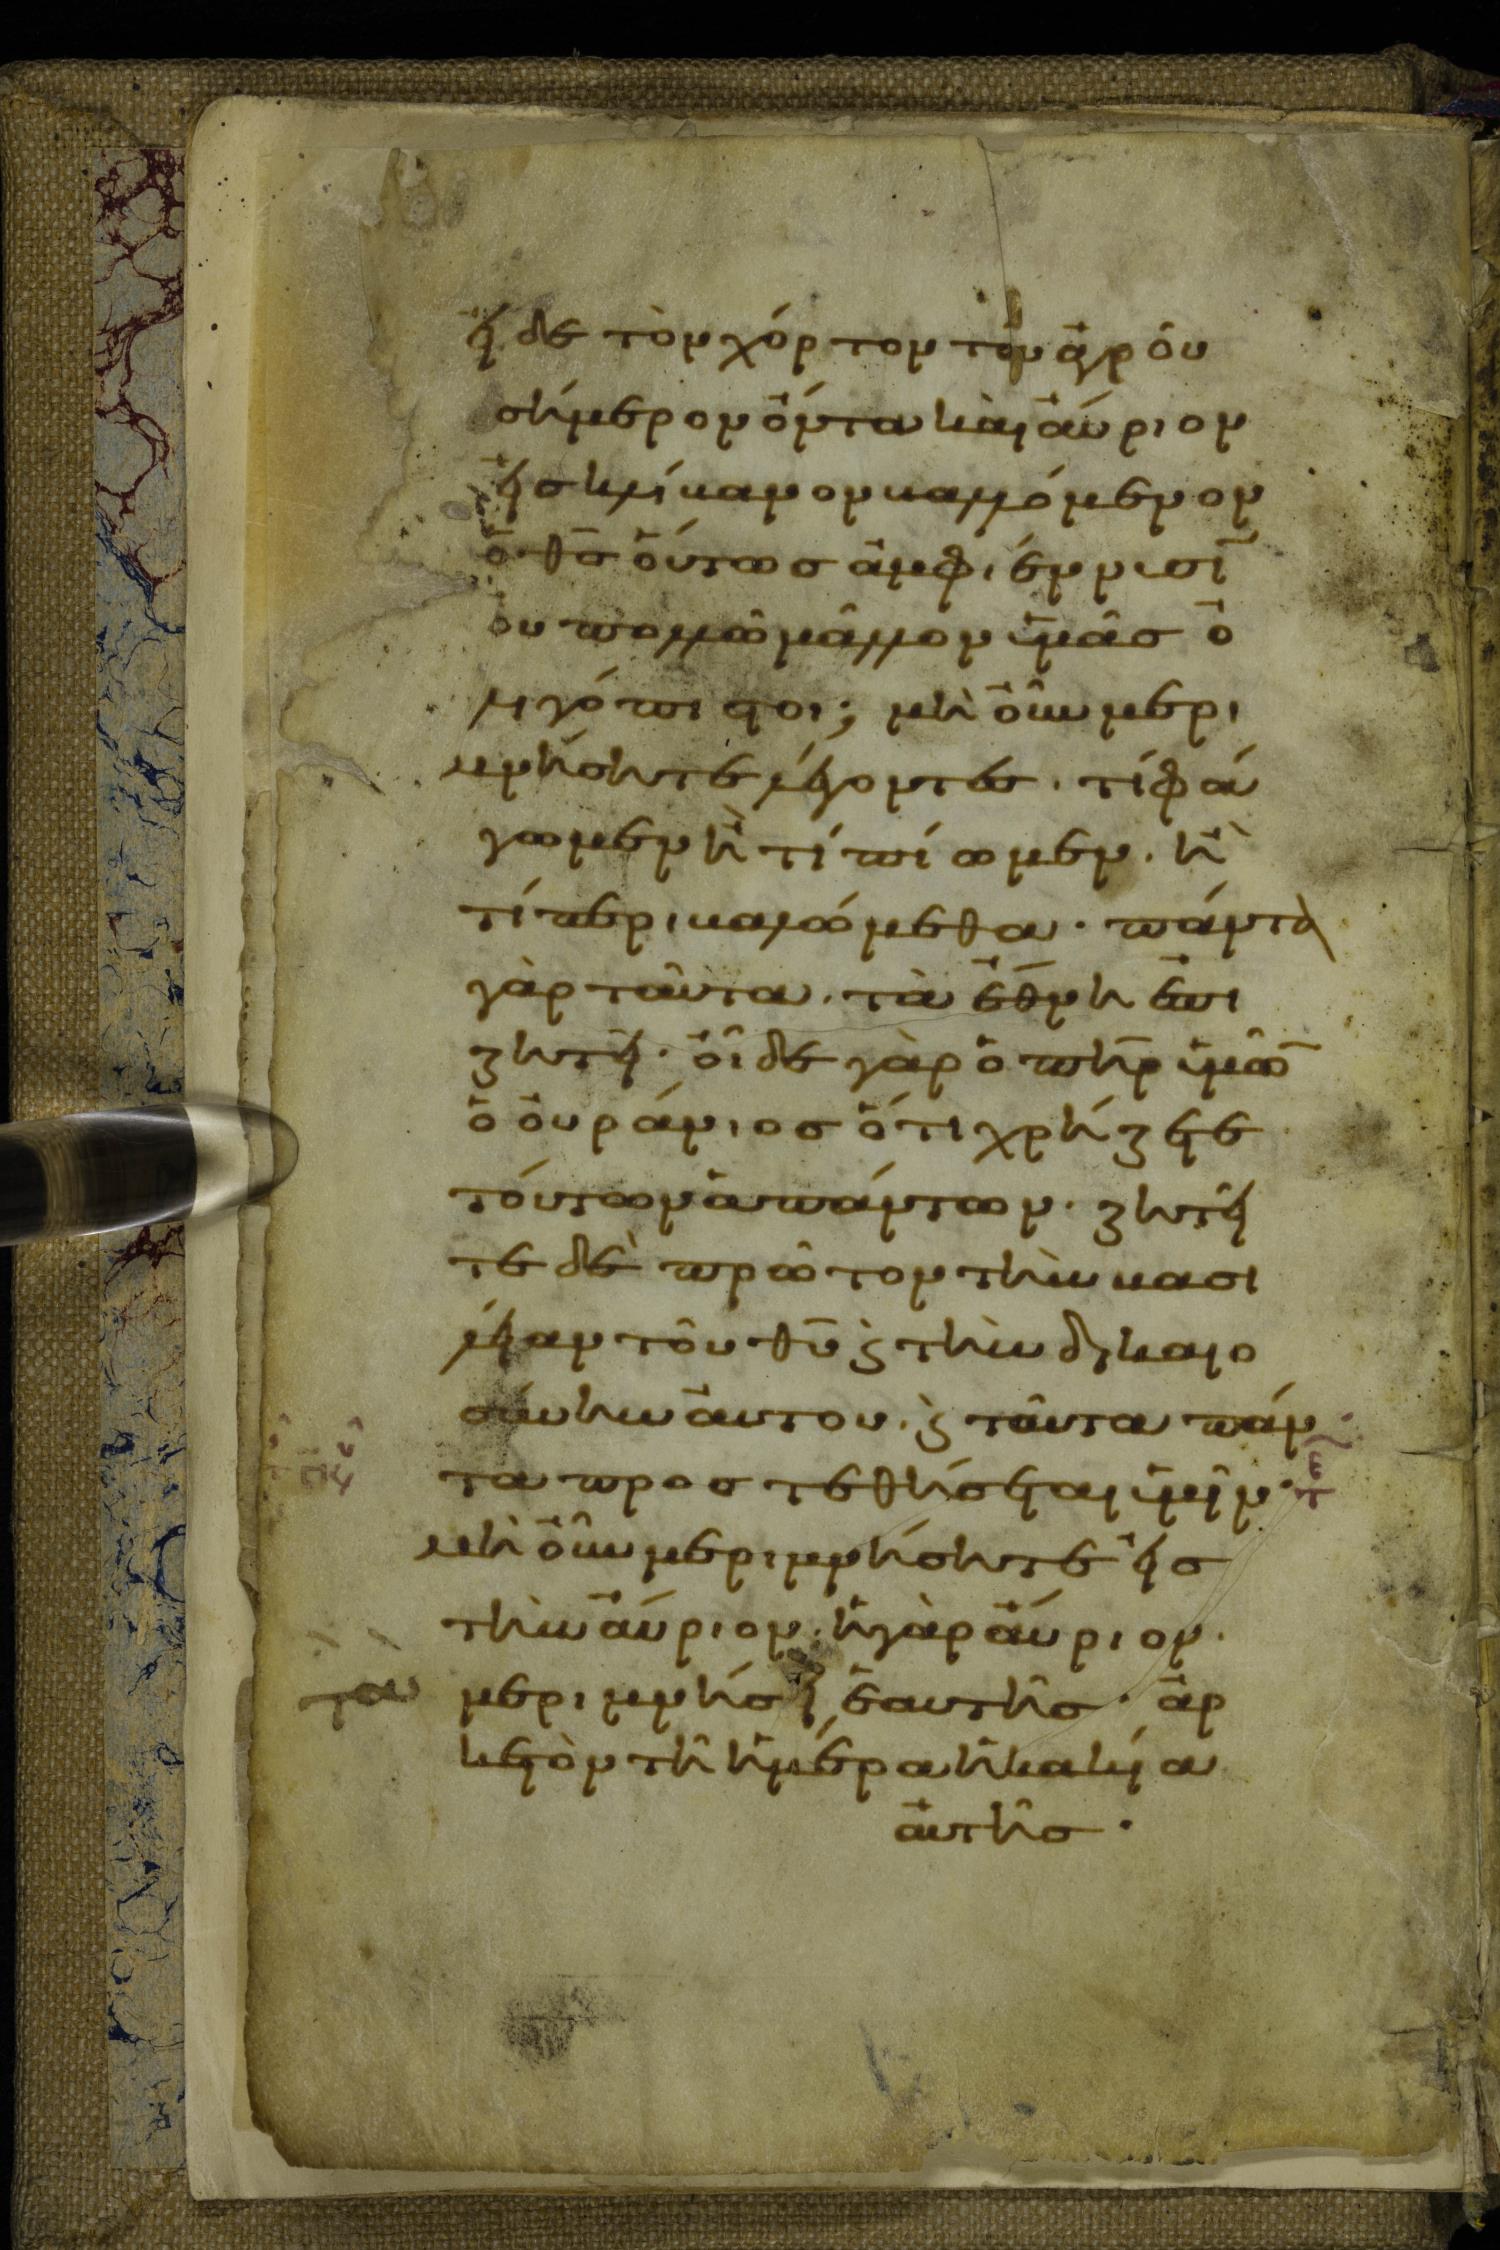 εἰ δὲ τὸν χόρτον τοῦ ἀγροῦ
σήμερον ὄντα καὶ ἄυριον
εἰς κλίβανον βαλλόμενον
ὁ θ̅ς̅ ὅυτως ἀμφιέννυσῖ
ὀυ πολλῶ μᾶλλον ὑμᾶς ὀ
λιγόπιστοι; μὴ ὀῦν μερι
μνήσητε λέγοντες. τί φά
γωμεν ἢ τί πίωμεν. ἢ
τί περιβαλώμεθα. πάντα
γὰρ ταῦτα. τὰ ἔθνη ἐπι
ζητεῖ. οἶδε γὰρ ὁ π̅η̅ρ̅ ὑμῶ̅
ὁ ὀυράνιος ὅτι χρήζετε
τόυτων ἁπάντων. ζητεῖ
τε δὲ πρῶτον τὴν βασι
λείαν τοῦ θ̅υ̅ ϗ τὴν δικαιο
σύνην ἀυτου. ϗ ταῦτα πάν
τα προστεθήσεται ὑμῖν.
μὴ ὀῦν μεριμνήσητε εἰς
τὴν ἄυριον. ἡ γὰρ ἄυριον.
τὰ μεριμνήσει ἑαυτῆς. ἀρ
κετὸν τῆ ἡμέρα ἡ κακία
ἀυτῆς.